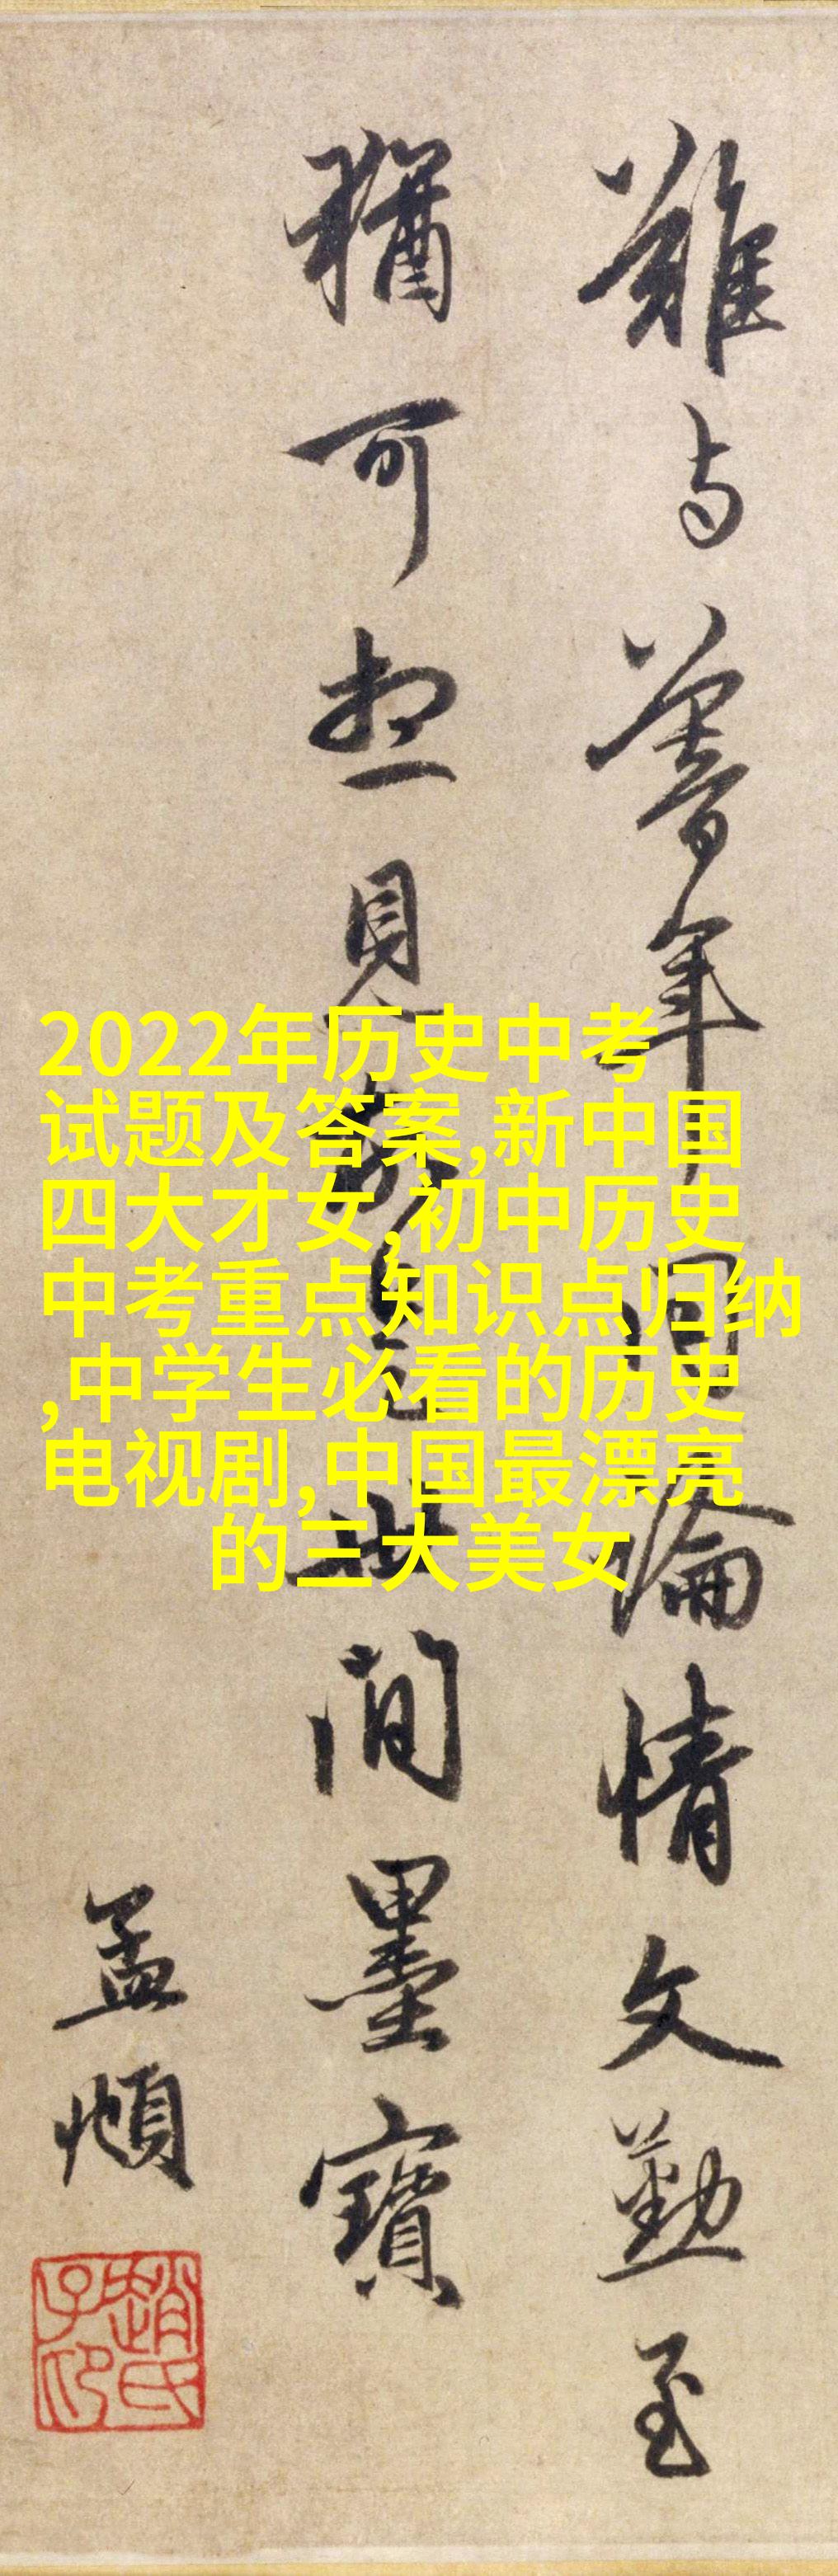 難与暮年同論情文勤至
猶可想見是世間墨寶
孟頫
趙氏子昂
2022年历史中考
试题及答案,新中国
四大才女,初中历史
中考重点知识点归纳
,中学生必看的历史
电视剧,中国最漂亮
的三大美女